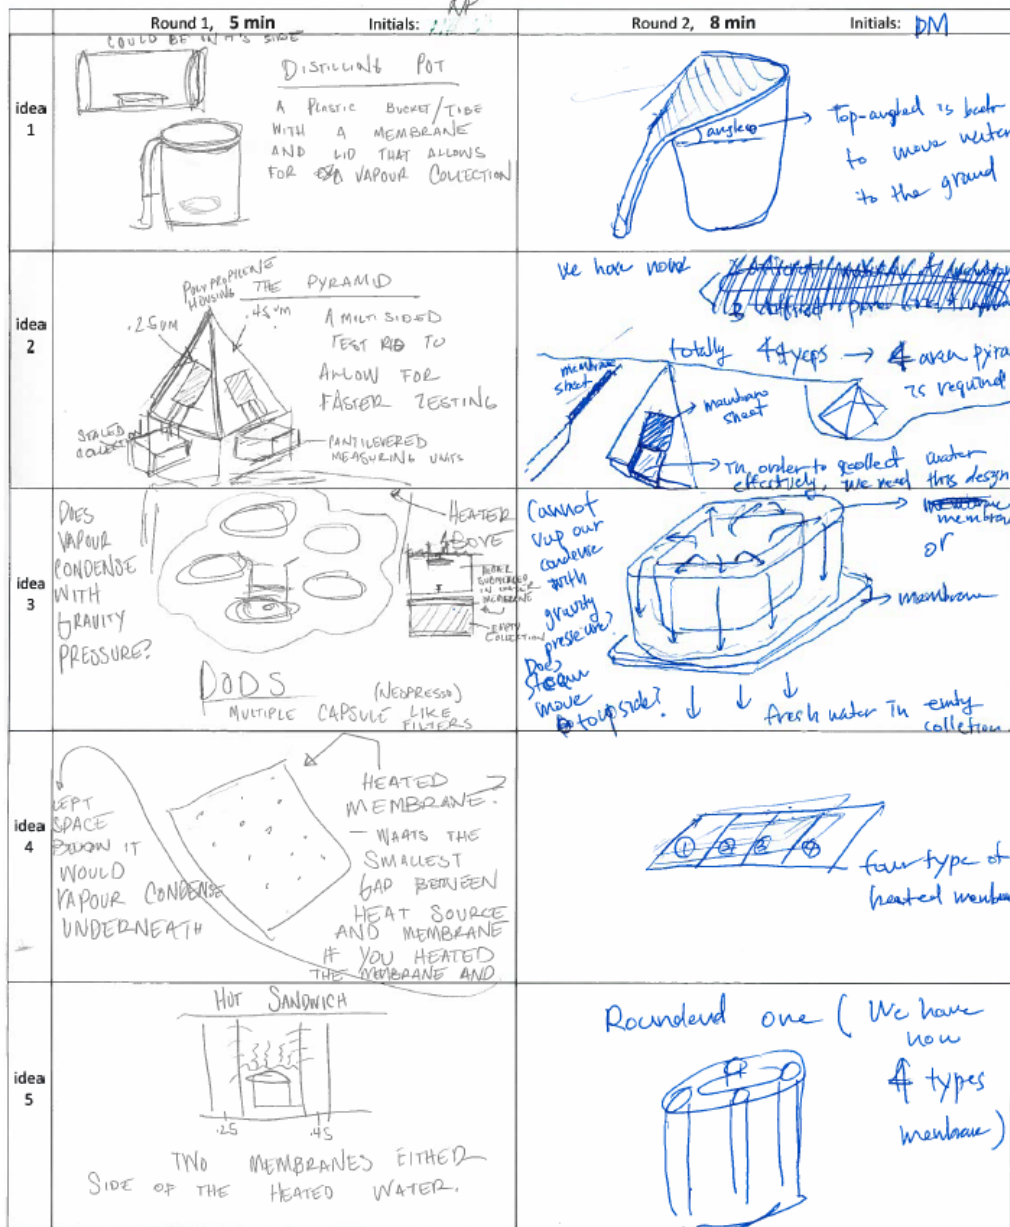 Round 1, 5 min
Initials:
Round 2, 8 min
Initials: DM
idea 1
COULD BE ON IT'S SIDE
DISTILLING POT
A PLASTIC BUCKET/TUBE
WITH A MEMBRANE
AND LID THAT ALLOWS
FOR VAPOUR COLLECTION
angle
Top-angled is
to move water
to the ground
idea 2
POLYPROPYLENE
HOUSING
THE PYRAMID
.25um
.45um
A MILTI SIDED
TEST TO
ALLOW FOR
FASTER TESTING
SEALED
CANTILEVERED
MEASURING UNITS
we have now
totally 4 types → 4 area
is required
membrane
sheet
membrane
sheet
In order to collect water
effectively, we need this design
idea 3
DOES
VAPOUR
CONDENSE
WITH
GRAVITY
PRESSURE?
HEATER
ABOVE
MEMBRANE
EMPTY
COLLECTION
PODS
(NESPRESSO)
MULTIPLE CAPSULE LIKE
FILTERS
Cannot
condense
with
gravity
pressure?
Does
move
membrane
or
membrane
fresh water in
idea 4
LEFT
SPACE
IT
WOULD
VAPOUR CONDENSE
UNDERNEATH
HEATED
MEMBRANE.
– WHATS THE
SMALLEST
GAP BETWEEN
HEAT SOURCE
AND MEMBRANE
IF YOU HEATED
THE MEMBRANE AND
1 2 3 4
four type of
heated
idea 5
HOT SANDWICH
.25
.45
TWO MEMBRANES EITHER
SIDE OF THE HEATED WATER.
one (We have
now
4 types
membrane)